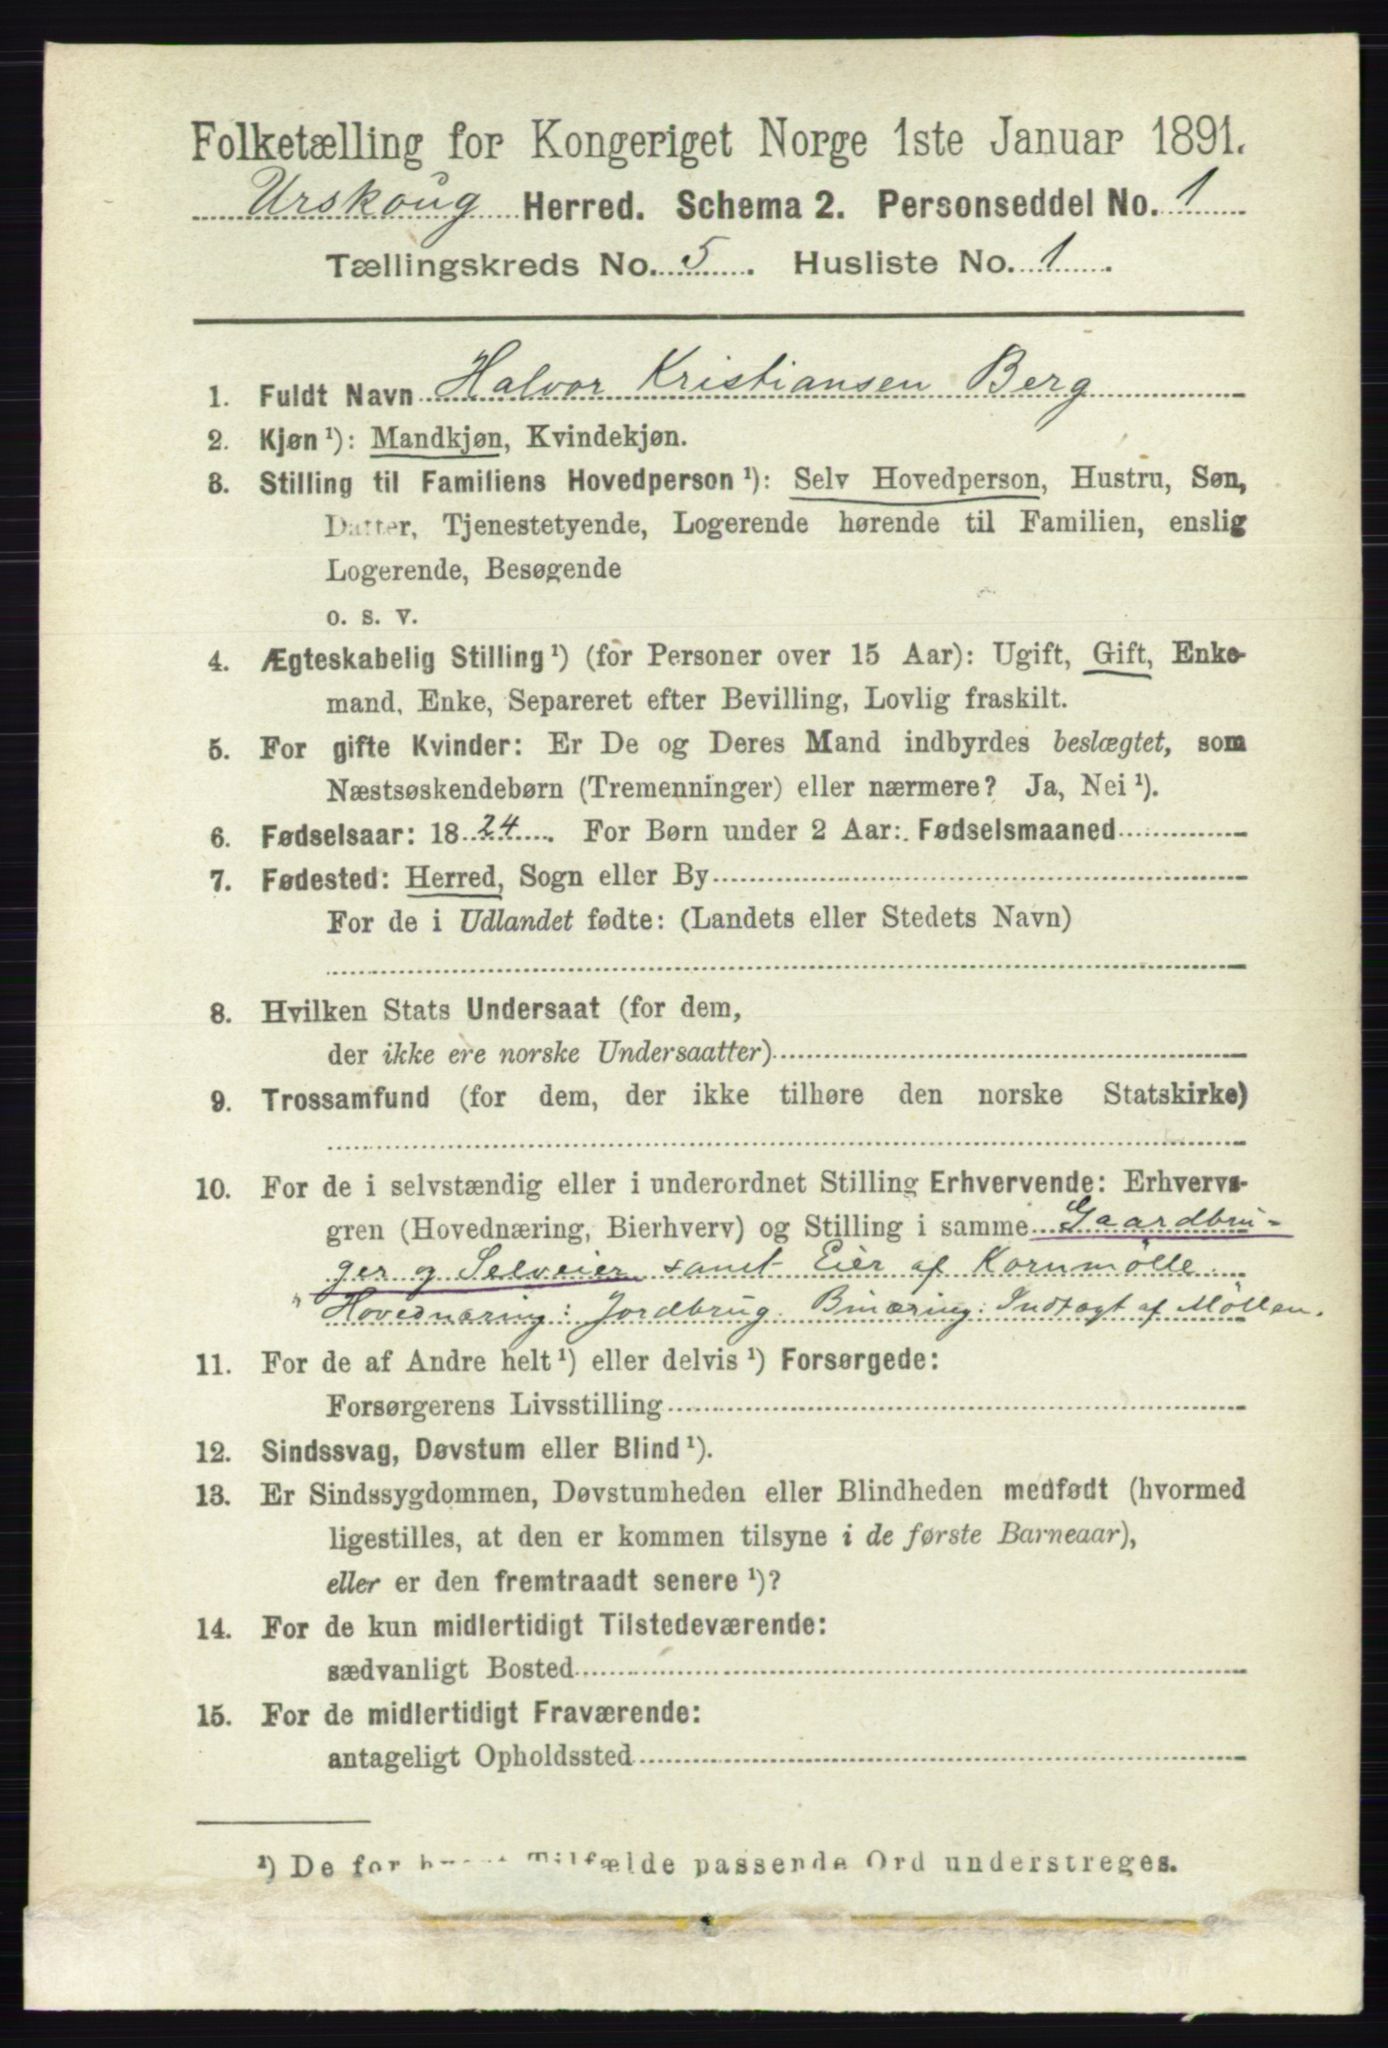 Folketælling for Kongeriget Norge 1ste Januar 1891.
Urskoug Herred. Schema 2. Personseddel No. 1
Tællingskreds No. 5. Husliste No. 1.
1. Fuldt Navn Halvor Kristiansen Berg
2. Kjøn ¹): Mandkjøn, Kvindekjøn.
3. Stilling til Familiens Hovedperson ¹): Selv Hovedperson, Hustru, Søn,
Datter, Tjenestetyende, Logerende hørende til Familien, enslig
Logerende, Besøgende
o. s. v.
4. Ægteskabelig Stilling ¹) (for Personer over 15 Aar): Ugift, Gift, Enke-
mand, Enke, Separeret efter Bevilling, Lovlig fraskilt.
5. For gifte Kvinder: Er De og Deres Mand indbyrdes beslægtet, som
Næstsøskendebørn (Tremenninger) eller nærmere? Ja, Nei ¹).
6. Fødselsaar: 1824. For Børn under 2 Aar: Fødselsmaaned
7. Fødested: Herred, Sogn eller By
For de i Udlandet fødte: (Landets eller Stedets Navn)
8. Hvilken Stats Undersaat (for dem,
der ikke ere norske Undersaatter)
9. Trossamfund (for dem, der ikke tilhøre den norske Statskirke)
10. For de i selvstændig eller i underordnet Stilling Erhvervende: Erhvervs-
gren (Hovednæring, Bierhverv) og Stilling i samme Gaardbru-
ger og Selveier samt Eier af Kornmölle.
" Hovednæring: Jordbrug. Binæring: Indtægt af Möllen.
11. For de af Andre helt ¹) eller delvis ¹) Forsørgede:
Forsørgerens Livsstilling
12. Sindssvag, Døvstum eller Blind ¹).
13. Er Sindssygdommen, Døvstumheden eller Blindheden medfødt (hvormed
ligestilles, at den er kommen tilsyne i de første Barneaar),
eller er den fremtraadt senere ¹)?
14. For de kun midlertidigt Tilstedeværende:
sædvanligt Bosted
15. For de midlertidigt Fraværende:
antageligt Opholdssted
¹) De for hvert Tilfælde passende Ord understreges.